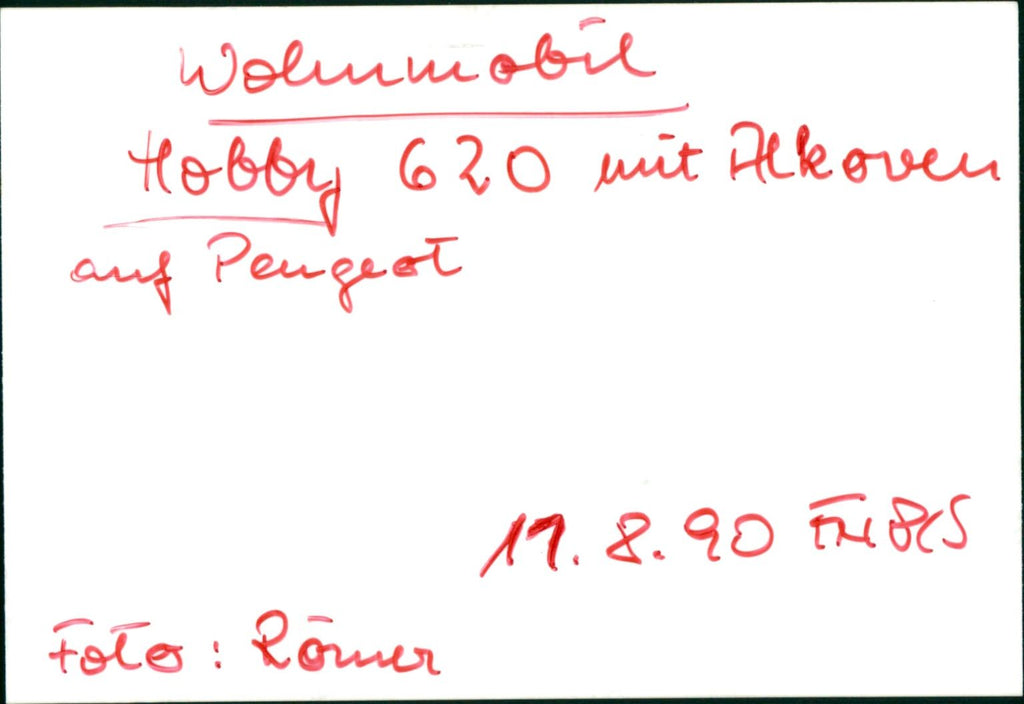 Wohnmobil
Hobby 620 mit Alkoven
auf Peugeot
11.8.90
Foto: Römer